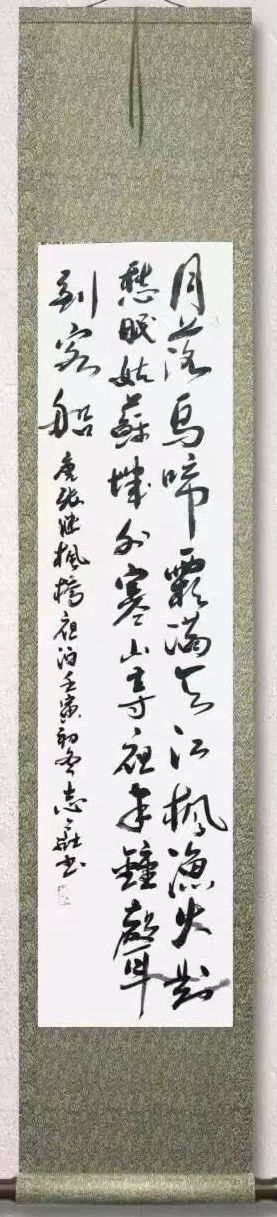 月落烏啼霜滿天江楓漁火對
愁眠姑蘇城外寒山寺夜半鐘聲
到客船
唐張繼楓橋夜泊壬寅初冬志 書